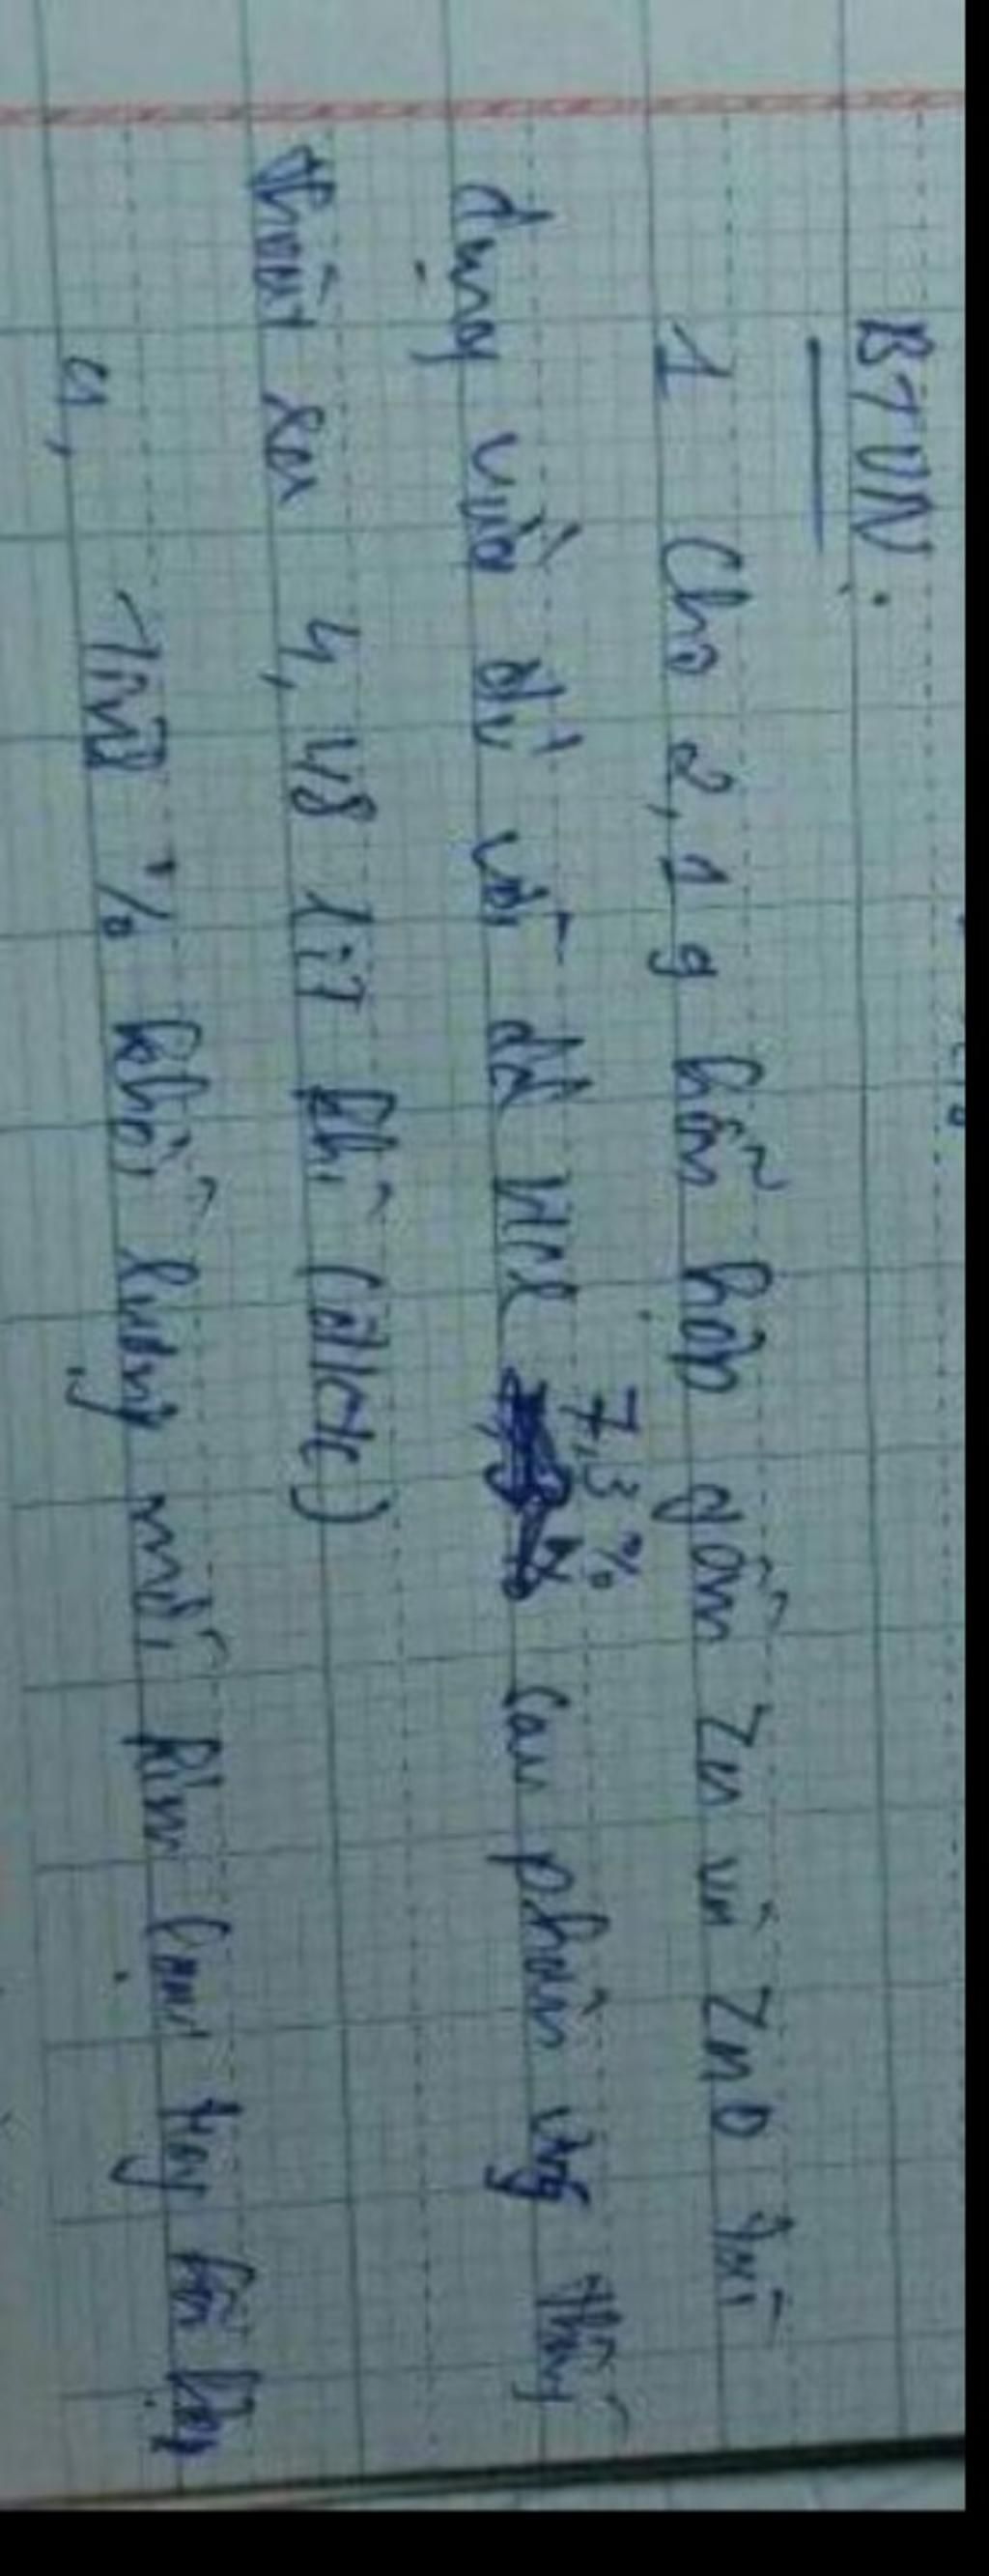 BTVN:
1 Cho 2,1 g hỗn hợp gồm Zn và ZnO tác
dụng vừa đủ với dd HCl 7,3% sau phản ứng thấy
thoát ra 4,48 lit khí (đktc)
a, Tính % khối lượng mỗi kim loại trong hỗn hợp